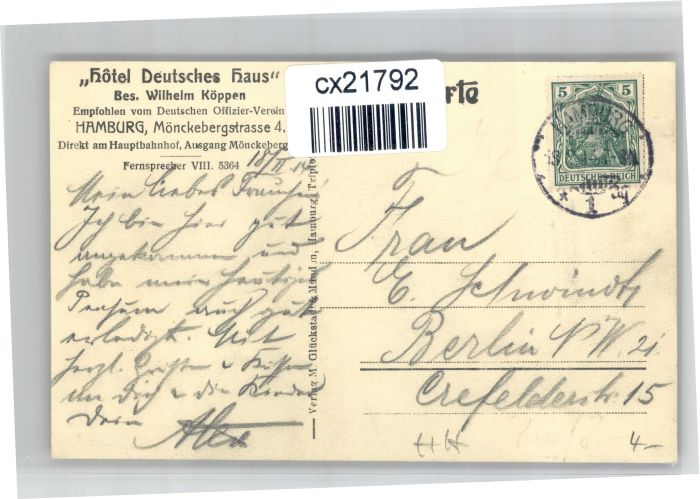 „Hôtel Deutsches Haus“
Bes. Wilhelm Köppen
Empfohlen vom Deutschen Offizier-Verein
HAMBURG, Mönckebergstrasse 4,
Direkt am Hauptbahnhof, Ausgang Mönckeberg
Fernsprecher VIII. 5364
cx21792
rte
5 5
DEUTSCHES REICH
HAMBURG
1
Verlag M. Glückstadt & Münden, Hamburg
18/II. 14
Mein liebes Frauchen
Ich bin hier gut
angekommen und
habe mein heutiges
Pensum auch gut
erledigt. Mit
herzl. Grüßen u Küssen
an Dich u die Kinder
Dein
Alex
Frau
E. Schwindt
Berlin N.W. 21
Crefelderstr. 15
4-